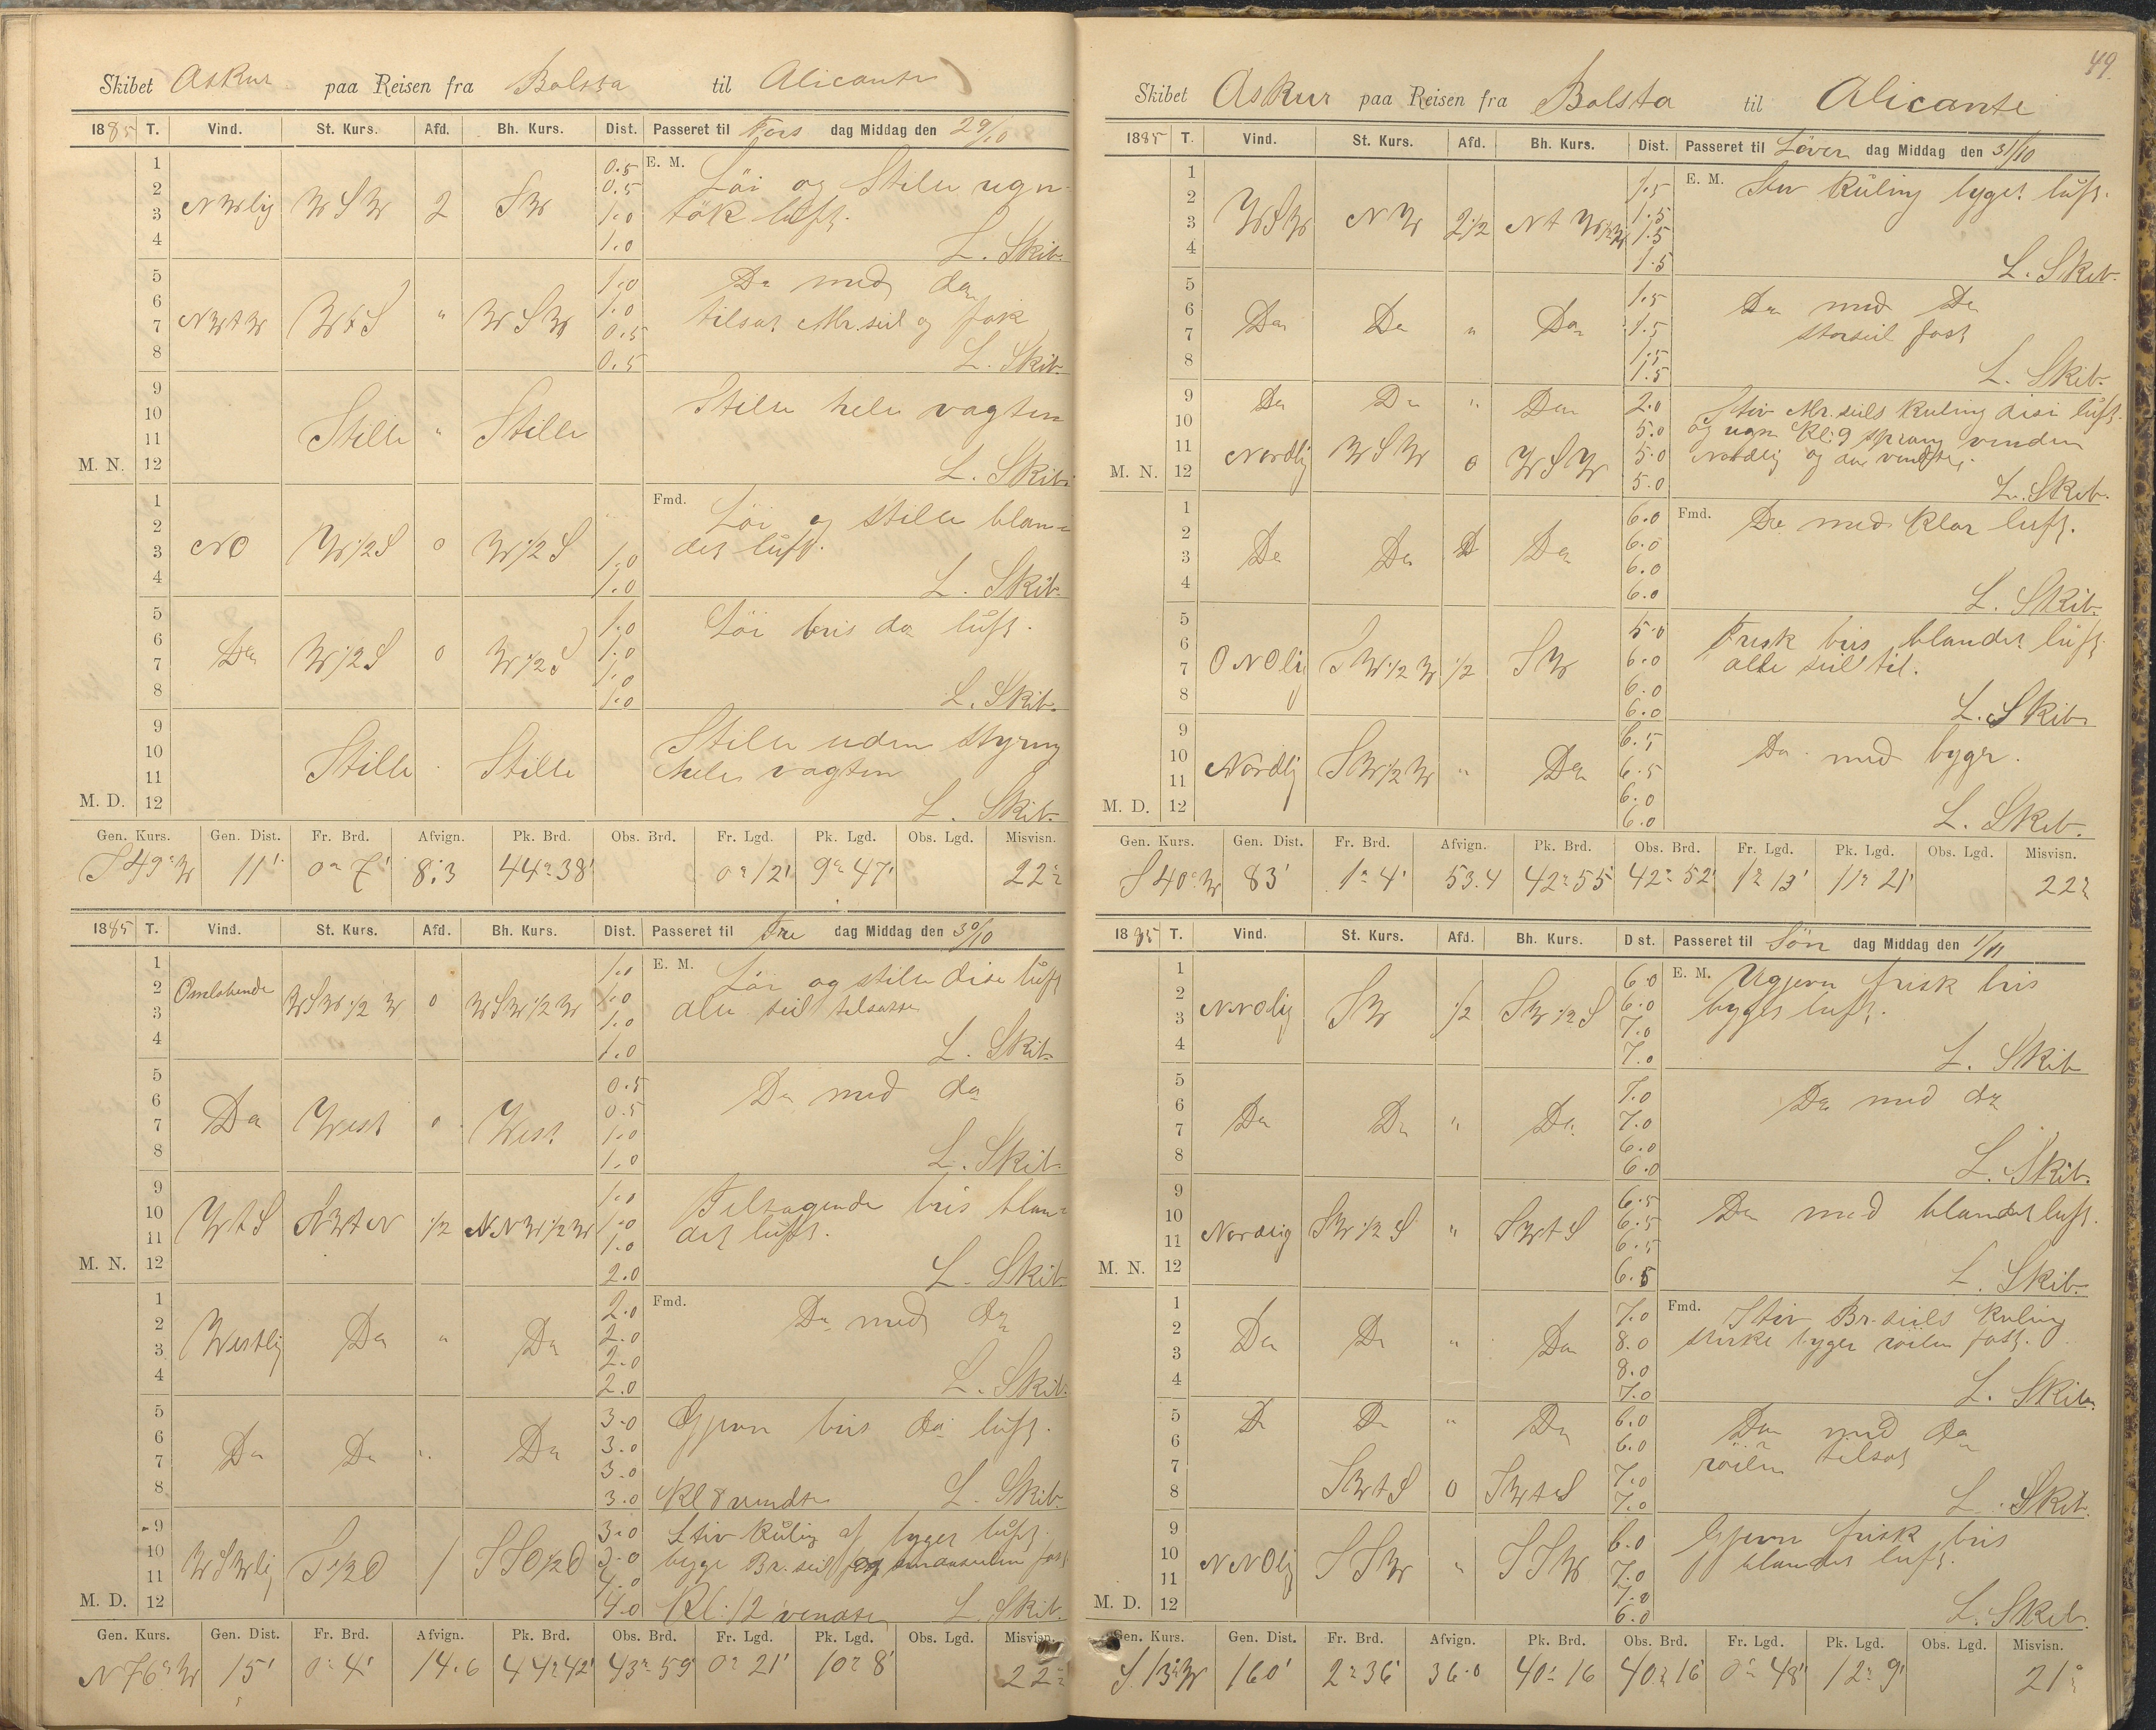 49
Skibet Askur paa Reisen fra Balsta til Alicante
1885 T. Vind. St. Kurs. Afd. Bh. Kurs. Dist. Passeret til Tors dag Middag den 29/10
1 0.5 E. M. Löi og Stille ugn
2 NWlig WSW 2 SW 0.5 tök luft.
3 1.0
4 1.0 L. Skib.
5 1.0 Do med do
6 NWtW WtS " WSW 1.0 tilsat Mr. seil og fok
7 0.5
8 0.5 L. Skib.
9 Stille hele vagten
10 Stille " Stille
11
M. N. 12 L. Skib.
1 Fmd. Löi og stille blan=
2 NO W 1/2 S 0 W 1/2 S det luft.
3 1.0
4 1.0 L. Skib.
5 1.0 Löi bris do luft.
6 Do W 1/2 S 0 W 1/2 S 1.0
7 1.0
8 1.0 L. Skib.
9 Stille uden styring
10 Stille Stille hele vagten
11
M. D. 12 L. Skib.
Gen. Kurs. Gen. Dist. Fr. Brd. Afvign. Pk. Brd. Obs. Brd. Fr. Lgd. Pk. Lgd. Obs. Lgd. Misvisn.
S 49° W 11' 0° 7' 8.3 44° 38' 0° 12' 9° 47' 22°
1885 T. Vind. St. Kurs. Afd. Bh. Kurs. Dist. Passeret til Fre dag Middag den 30/10
1 1.0 E. M. Löi og stille dise luft
2 Omlobende WSW 1/2 W 0 WSW 1/2 W 1.0 alle seil tilsatte
3 1.0
4 1.0 L. Skib.
5 0.5 Do med do
6 Do West 0 West 0.5
7 1.0
8 1.0 L. Skib.
9 1.0 Teltagende bris blan=
10 WtS NWtN 1/2 NNW 1/2 W 1.0 det luft.
11 1.0
M. N. 12 2.0 L. Skib.
1 2.0 Fmd. Do med do
2 Westlig Do " Do 2.0
3 2.0
4 2.0 L. Skib.
5 3.0 Gjevn bris do luft.
6 Do Do " Do 3.0
7 3.0
8 3.0 Kl 8 vendte L. Skib.
9 3.0 Stiv Kuling af byget luft.
10 WSWlig S 1/2 O 1 SSO 1/2 O 3.0 byge Br. seil og fast
11 4.0
M. D. 12 4.0 Kl. 12 vendte L. Skib.
Gen. Kurs. Gen. Dist. Fr. Brd. Afvign. Pk. Brd. Obs. Brd. Fr. Lgd. Pk. Lgd. Obs. Lgd. Misvisn.
N 76° W 15' 0° 4' 14.6 44° 42' 43° 59' 0° 21' 10° 8' 22°
Skibet Askur paa Reisen fra Balsta til Alicante
1885 T. Vind. St. Kurs. Afd. Bh. Kurs. Dist. Passeret til Löver dag Middag den 31/10
1 1.5 E. M. Stiv Kuling byget luft.
2 WSW NW 2 1/2 NtW 1/2 W 1.5
3 1.5
4 1.5 L. Skib.
5 1.5 Do med Do
6 Do Do " Do 1.5 storseil fast
7 1.5
8 1.5 L. Skib.
9 Do Do " Do 2.0 Stiv Mr. seils Kuling disi luft.
10 5.0 og regn Kl: 9 sprang vinden
11 Nordlig WSW 0 WSW 5.0 Nordlig og
M. N. 12 5.0 L. Skib.
1 6.0 Fmd. Do med Klar luft.
2 Do Do Do 6.0
3 6.0
4 6.0 L. Skib.
5 5.0 Frisk bris blandet luft
6 ONOlig SW 1/2 W 1/2 SW 6.0 alle seil til.
7 6.0
8 6.0 L. Skib
9 6.5 Do med byger.
10 Nordlig SW 1/2 W " Do 6.5
11 6.0
M. D. 12 6.0 L. Skib.
Gen. Kurs. Gen. Dist. Fr. Brd. Afvign. Pk. Brd. Obs. Brd. Fr. Lgd. Pk. Lgd. Obs. Lgd. Misvisn.
S 40° W 83' 1° 4' 53.4 42° 55' 42° 52' 1° 13' 11° 21' 22°
1885 T. Vind. St. Kurs. Afd. Bh. Kurs. Dist. Passeret til Sön dag Middag den 1/11
1 6.0 E. M. Ugjevn frisk bris
2 NNOlig SW 1/2 SW 1/2 S 6.0 byget luft.
3 7.0
4 7.0 L. Skib
5 7.0 Do med do
6 Do Do " Do 7.0
7 6.0
8 6.0 L. Skib.
9 6.5 Do med blandet luft.
10 Nordlig SW 1/2 S " SWtS 6.5
11 6.5
M. N. 12 6.5 L. Skib.
1 7.0 Fmd. Stiv Br. seils Kuling
2 Do Do " Do 8.0 sterke byger röilen fast.
3 8.0
4 7.0 L. Skib.
5 Do Do " Do 6.0 Do med do
6 6.0 röilen tilsat
7 7.0
8 SWtS 0 SWtS 7.0 L. Skib.
9 6.0 Gjevn frisk bris
10 NNOlig SSW " SSW 7.0 blandet luft.
11 7.0
M. D. 12 6.0 L. Skib.
Gen. Kurs. Gen. Dist. Fr. Brd. Afvign. Pk. Brd. Obs. Brd. Fr. Lgd. Pk. Lgd. Obs. Lgd. Misvisn.
S 13° W 160' 2° 36' 36.0 40° 16 40° 16' 0° 48' 12° 9' 21°